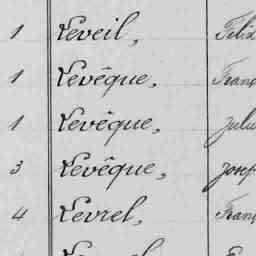 1 Leveil,
1 Levêque, Franç
1 Levêque, Jules
3 Levêque, Josep
4 Levrel, Franç